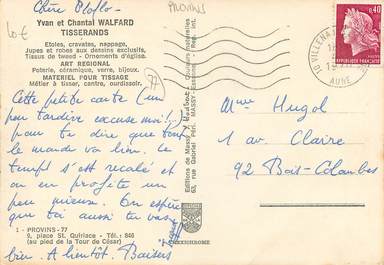 Chère Floflo.
PROVINS
10€
Yvan et Chantal WALFARD
TISSERANDS
Etoles, cravates, nappage,
Jupes et robes aux dessins exclusifs,
Tissus de tweed - Ornements d'église.
ART REGIONAL
Poterie, céramique, verre, bijoux.
MATERIEL POUR TISSAGE
Métier à tisser, cantre, ourdissoir.
77
Cette petite carte (un
peu tardive excuse moi!!)
pour te dire que tout
le monde va bien. Le
temps s'est recalé et
on en profite un
peu mieux. On espère
que toi aussi tu vas
bien. A bientôt. Baisers
1 - PROVINS - 77
9, place St. Quiriace - Tél.: 846
(au pied de la Tour de César)
Editions de Massy
63, rue Gabriel Péri
MASSY
MEXICHROME
0,40
REPUBLIQUE FRANÇAISE
10 VILLENA
AUBE
Mme Hugol
1 av. Claire
92 Bois-Colombes